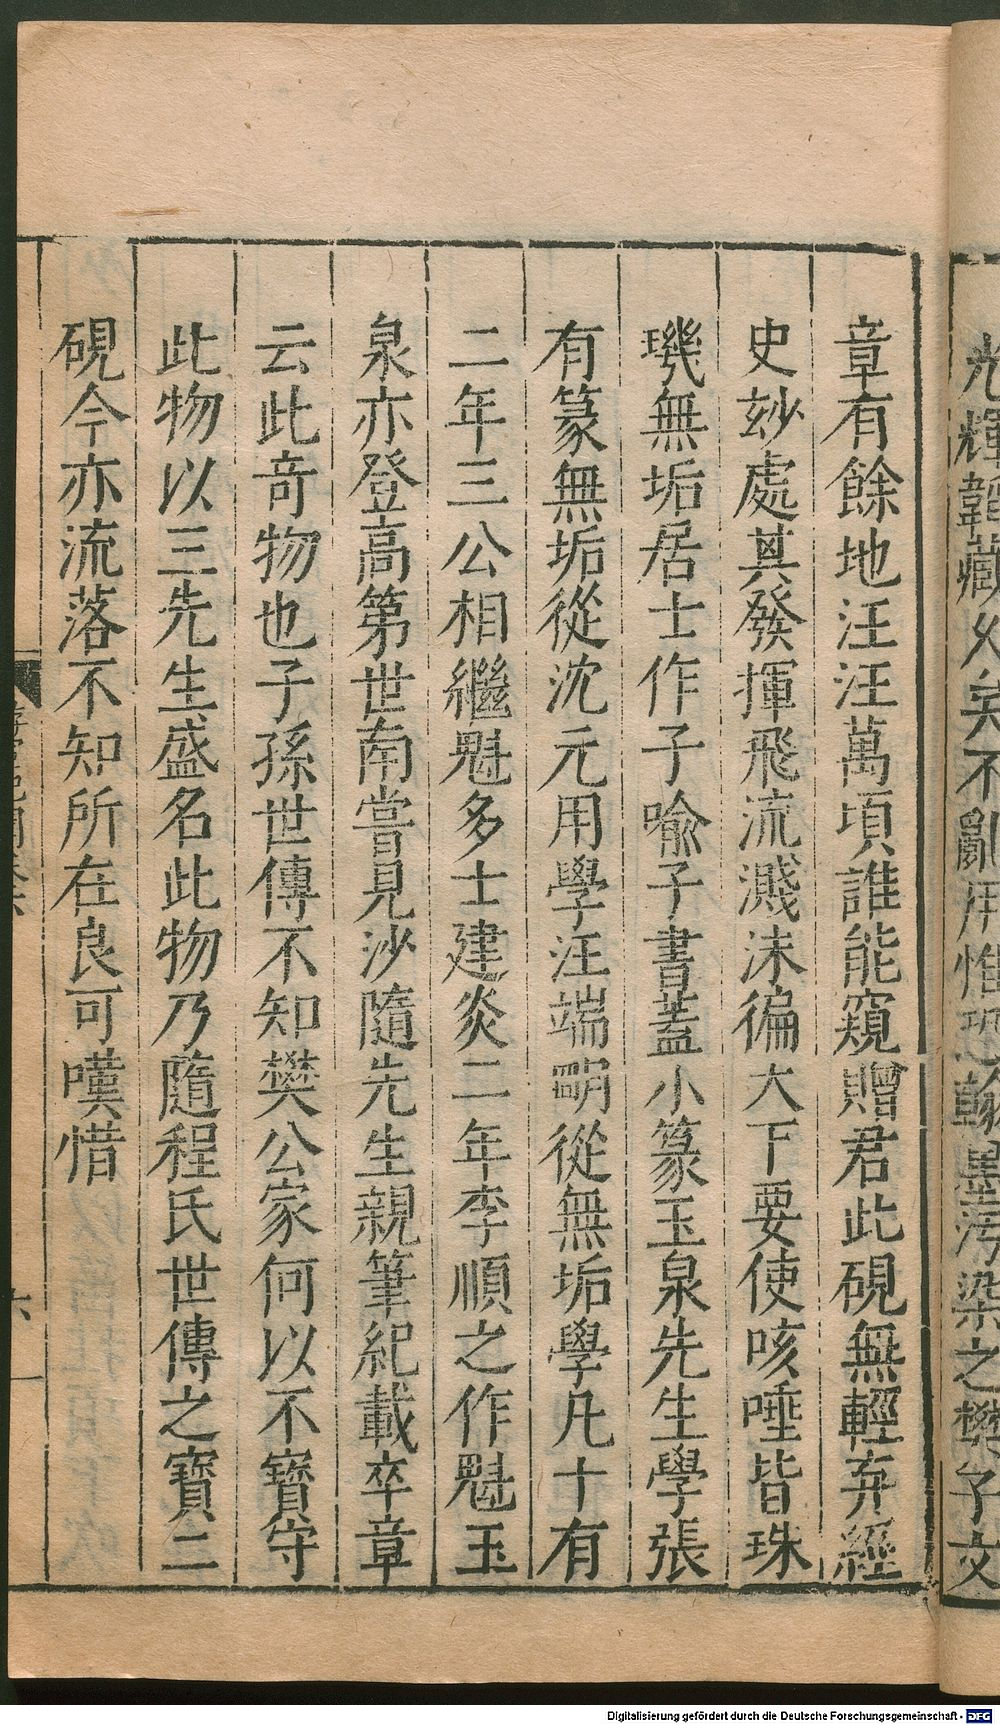 光輝韞藏乆矣不亂用惟恐翰墨汚染之樊子文
章有餘地汪汪萬頃誰能窺贈君此硯無輕弃經
史玅處其發揮飛流濺沫徧大下要使咳唾皆珠
璣無垢居士作子喻子書蓋小篆玉泉先生學張
有篆無垢從沈元用學汪端明從無垢學凡十有
二年三公相繼魁多士建炎二年李順之作魁玉
泉亦登高第世南嘗見沙隨先生親筆紀載卒章
云此奇物也子孫世傳不知樊公家何以不寶守
此物以三先生盛名此物乃隨程氏世傳之寶二
硯今亦流落不知所在良可嘆惜
六
Digitalisierung gefördert durch die Deutsche Forschungsgemeinschaft - DFG